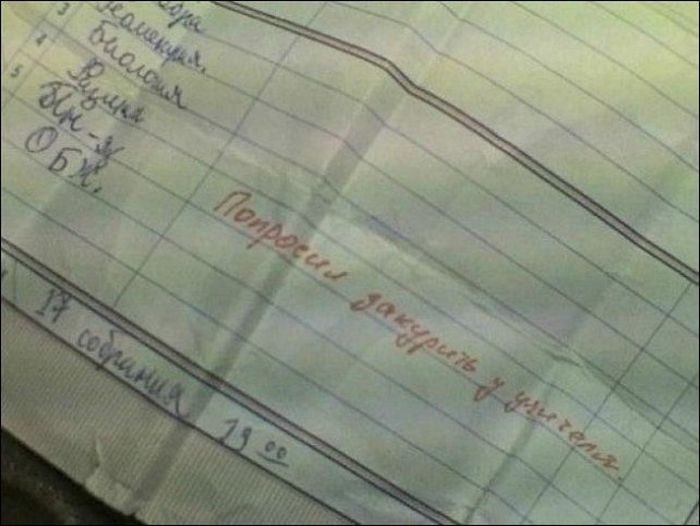 3
Геометрия.
4 Биология
5 Физика
Ин-я
ОБЖ.
Попросил закурить у учителя.
17 собрания 19 00